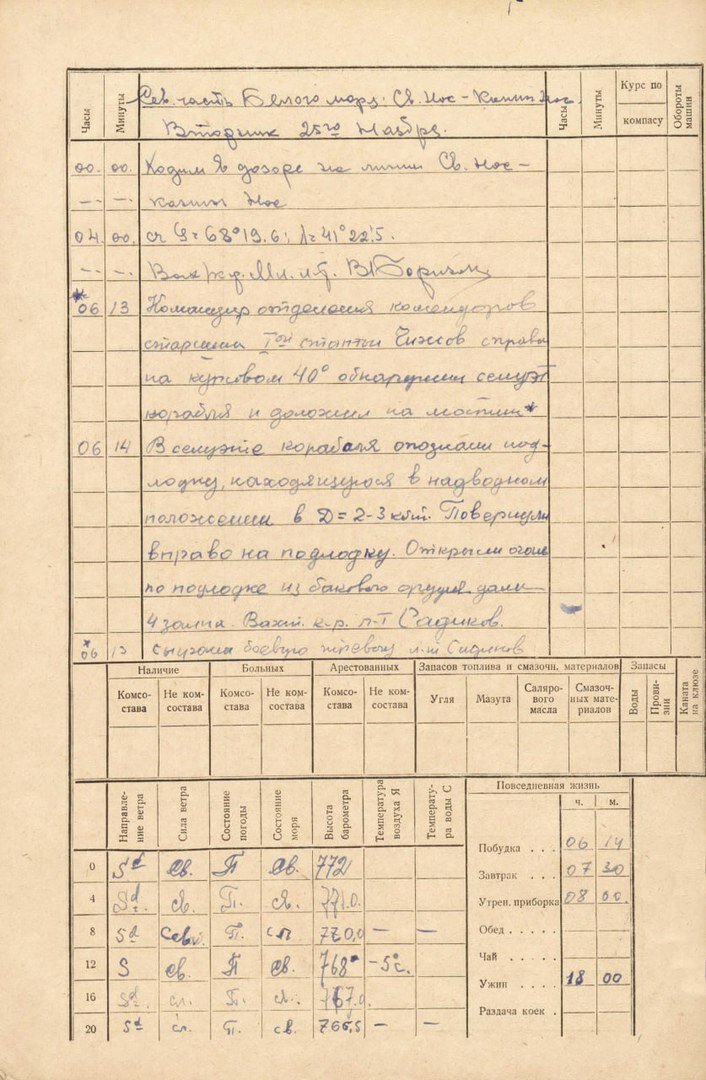 Часы Минуты Сев. часть Белого моря. Св. Нос – Канин Нос. Часы Минуты Курс по компасу Обороты машин
Вторник 25го Ноября.
00. 00. Ходим в дозоре на линии Св. Нос –
–·– –·– Канин Нос
04 00. сч φ = 68°19.6; λ = 41°22.5.
–·– –·– Вах.
*06 13 Командир отделения комендоров
старшина Iой статьи Чижов справа
на курсовом 40° обнаружил силуэт
корабля и доложил на мостик*
06 14 В силуэте корабля опознали под-
лодку, находящуюся в надводном
положении в D = 2-3 кбт. Повернули
вправо на подлодку. Открыли огонь
по подлодке из бакового орудия дали
4 залпа. Вахт. к-р. л-т Садиков.
*06 13 сыграна боевую тревогу л-т Садиков
Наличие Больных Арестованных Запасов топлива и смазочн. материалов Запасы
Комсо-става Не ком-состава Комсо-става Не ком-состава Комсо-става Не ком-состава Угля Мазута Саляро-вого масла Смазоч-ных мате-риалов Воды Прови-зии Каната на клюзе
Направле-ние ветра Сила ветра Состояние погоды Состояние моря Высота барометра Температура воздуха Я Температу-ра воды С
0 Sd св. П св. 772
4 Sd. св. П. св. 771.0.
8 Sd П. сл 770,0 – –
12 S св. П св. 768 –5°с.
16 Sd сл. П. сл. 767.0.
20 Sd сл. П. св. 766,5 – –
Повседневная жизнь
ч. м.
Побудка . . . 06 14
Завтрак . . . 07 30
Утрен. приборка 08 00.
Обед . . . . .
Чай . . . . .
Ужин . . . . 18 00
Раздача коек .